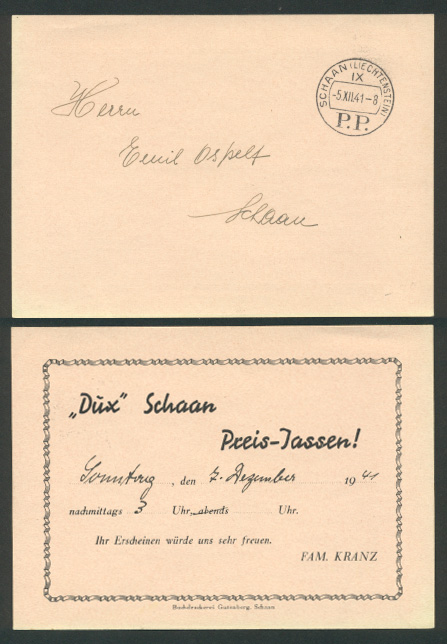 SCHAAN (LIECHTENSTEIN)
IX
-5.XII.41-8
P.P.
Herrn
Emil Ospelt
Schaan
„Dux" Schaan
Preis-Jassen!
Sonntag, den 7. Dezember 1941
nachmittags 3 Uhr, abends Uhr.
Ihr Erscheinen würde uns sehr freuen.
FAM. KRANZ
Buchdruckerei Gutenberg, Schaan